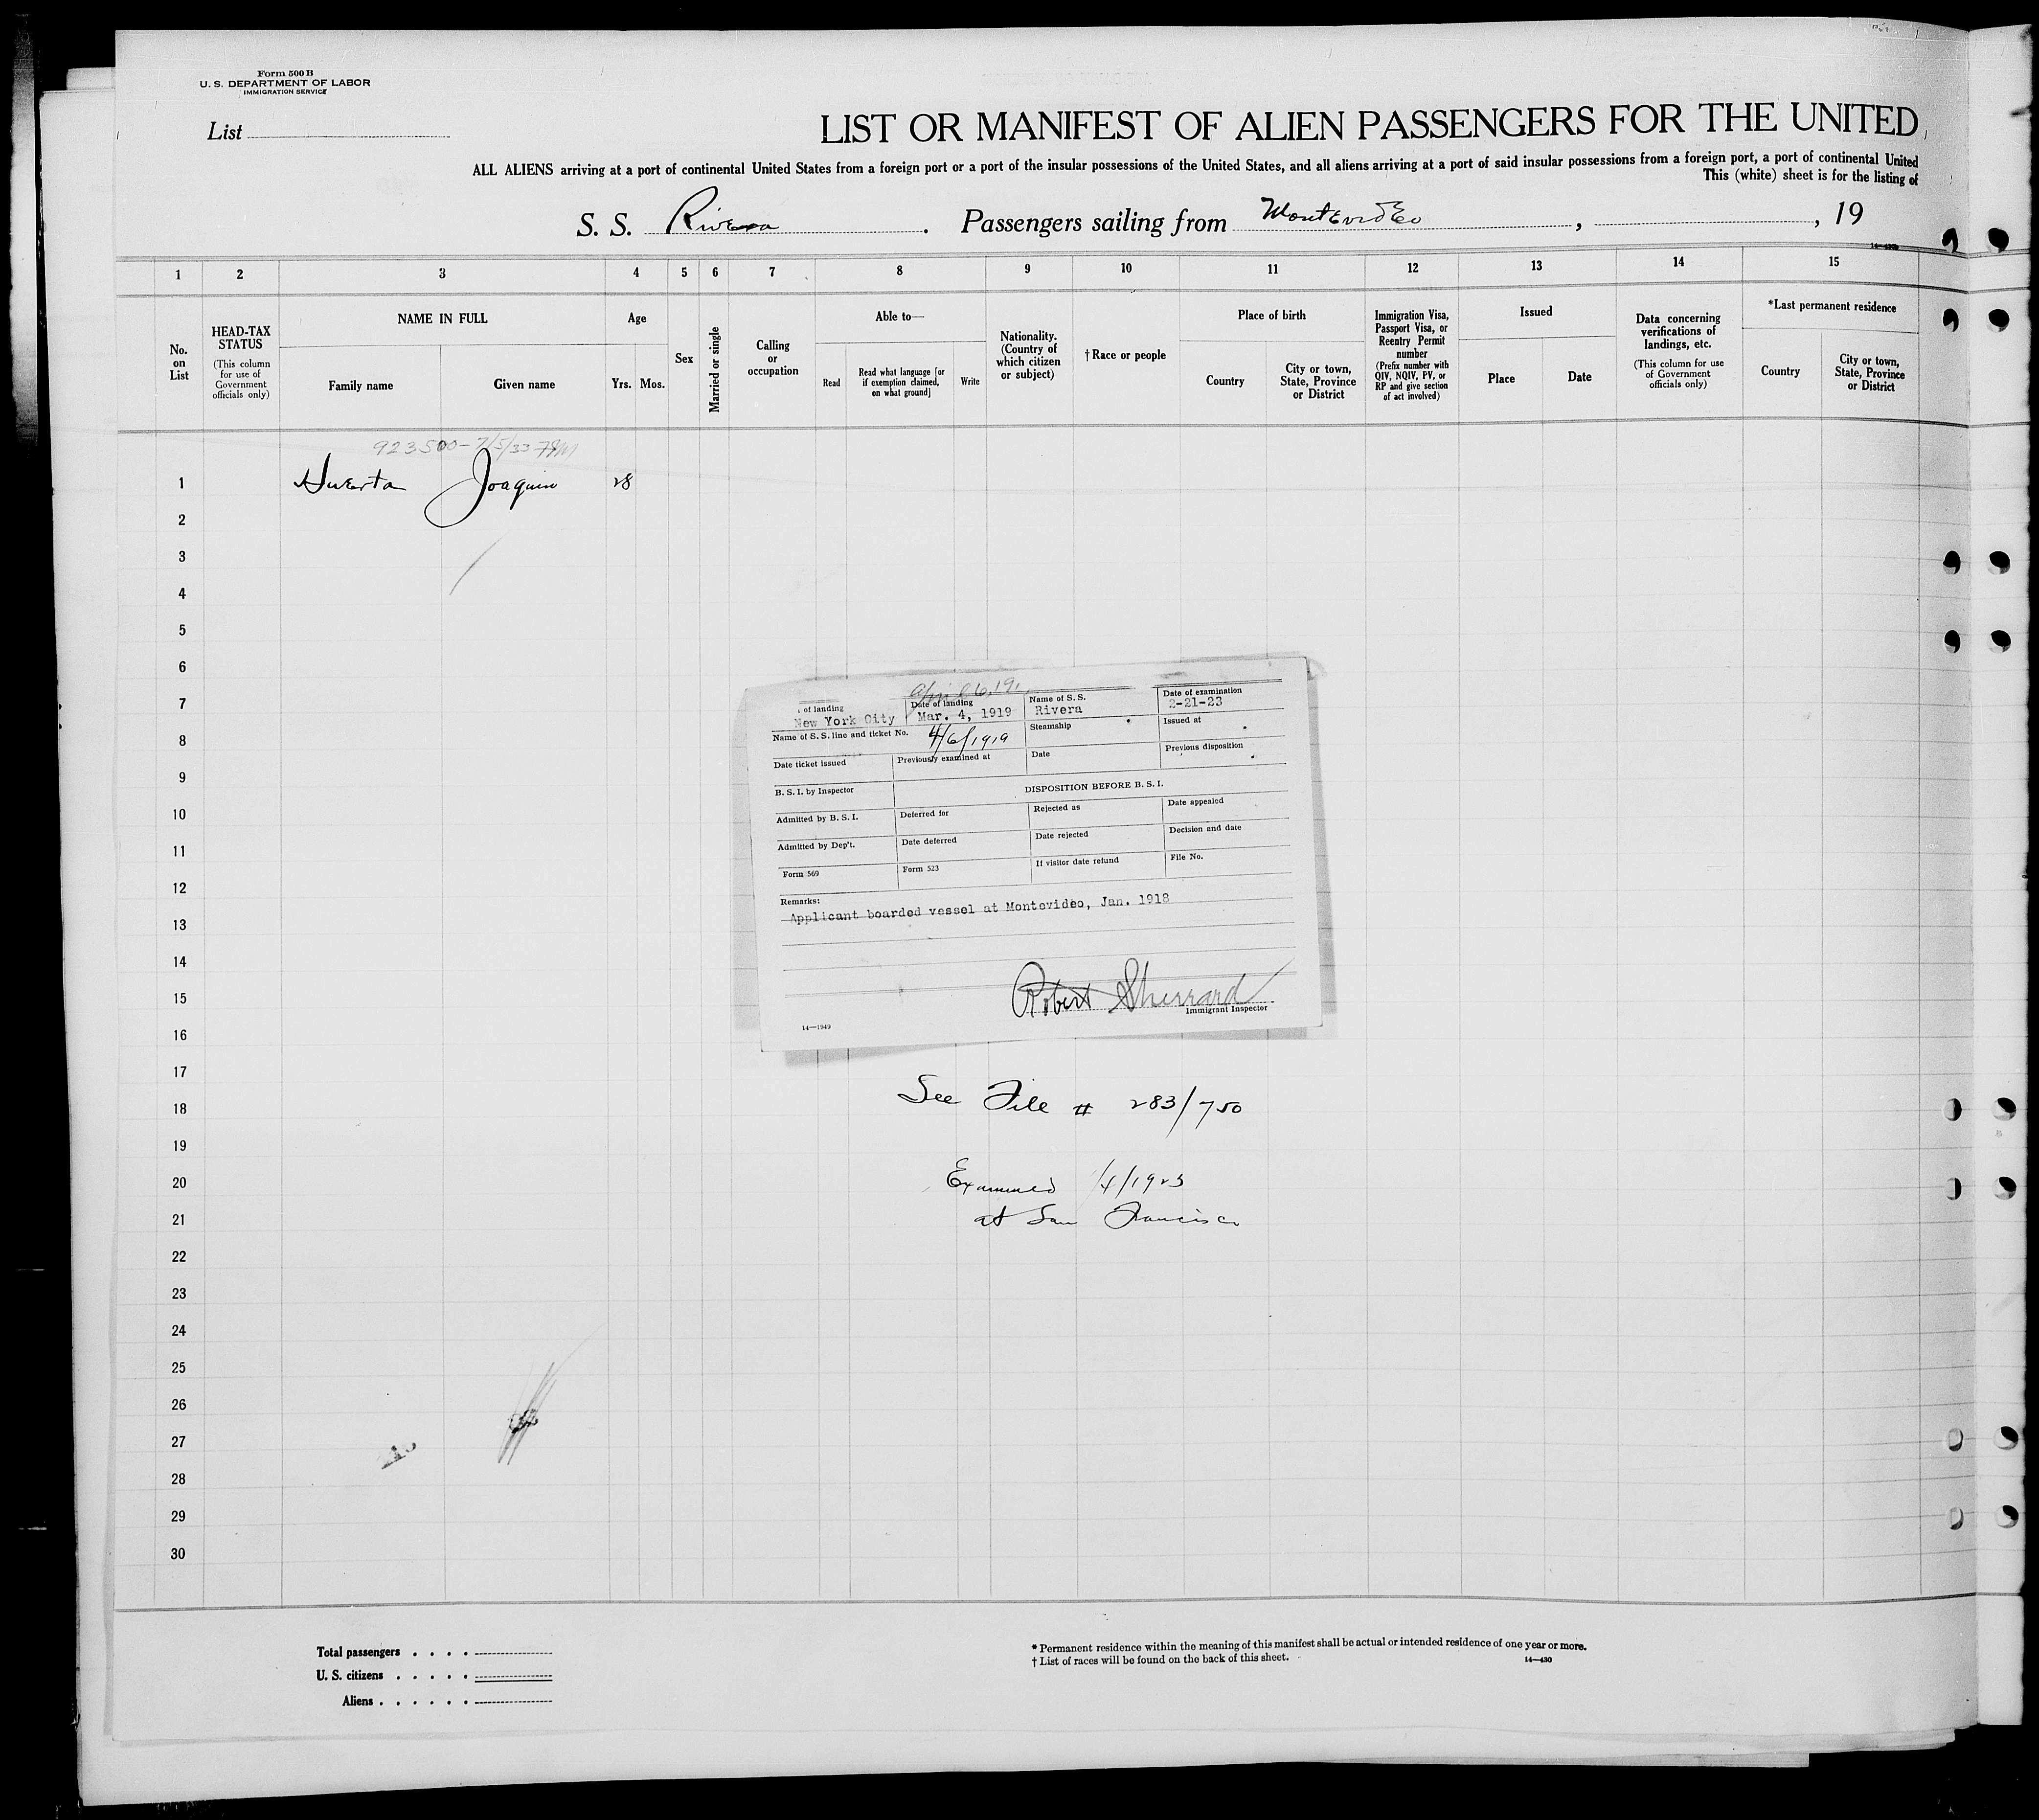 Form 500 B
U. S. DEPARTMENT OF LABOR
IMMIGRATION SERVICE
List
LIST OR MANIFEST OF ALIEN PASSENGERS FOR THE UNITED
ALL ALIENS arriving at a port of continental United States from a foreign port or a port of the insular possessions of the United States, and all aliens arriving at a port of said insular possessions from a foreign port, a port of continental United
This (white) sheet is for the listing of
S. S. Rivera . Passengers sailing from Montevideo , , 19
1 2 3 4 5 6 7 8 9 10 11 12 13 14 15
No. on List
HEAD-TAX STATUS
(This column for use of Government officials only)
NAME IN FULL
Family name
Given name
Age
Yrs. Mos.
Sex
Married or single
Calling or occupation
Able to—
Read
Read what language [or if exemption claimed, on what ground]
Write
Nationality. (Country of which citizen or subject)
†Race or people
Place of birth
Country
City or town, State, Province or District
Immigration Visa, Passport Visa, or Reentry Permit number
(Prefix number with QIV, NQIV, PV, or RP and give section of act involved)
Issued
Place
Date
Data concerning verifications of landings, etc.
(This column for use of Government officials only)
*Last permanent residence
Country
City or town, State, Province or District
923500-7/5/33
1 Huerta Joaquin 28
2
3
4
5
6
7
8
9
10
11
12
13
14
15
16
17
18
19
20
21
22
23
24
25
26
27
28
29
30
of landing
New York City
Date of landing
Mar. 4, 1919
Name of S. S.
Rivera
Date of examination
2-21-23
Name of S. S. line and ticket No.
4/6/1919
Steamship
Issued at
Date ticket issued
Previously examined at
Date
Previous disposition
B. S. I. by Inspector
DISPOSITION BEFORE B. S. I.
Admitted by B. S. I.
Deferred for
Rejected as
Date appealed
Admitted by Dep't.
Date deferred
Date rejected
Decision and date
Form 569
Form 523
If visitor date refund
File No.
Remarks:
Applicant boarded vessel at Montevideo, Jan. 1918
Robert Sherrard
Immigrant Inspector
14—1949
See File # 283/750
Examined 1/4/1923
at San Francisco
Total passengers . . . .
U. S. citizens . . . . .
Aliens . . . . . .
* Permanent residence within the meaning of this manifest shall be actual or intended residence of one year or more.
† List of races will be found on the back of this sheet.
14—430